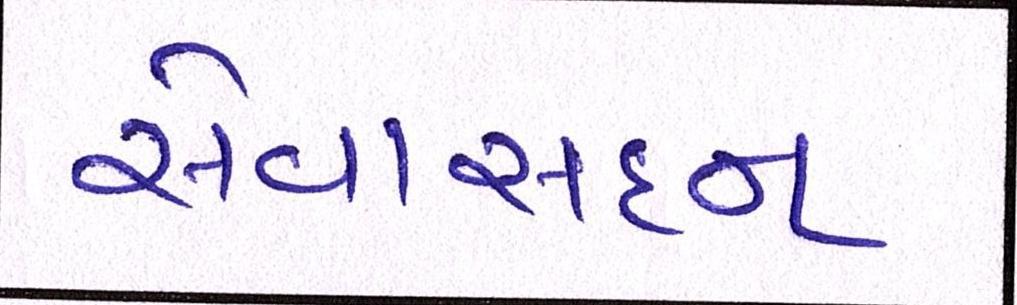 સેવાસદન